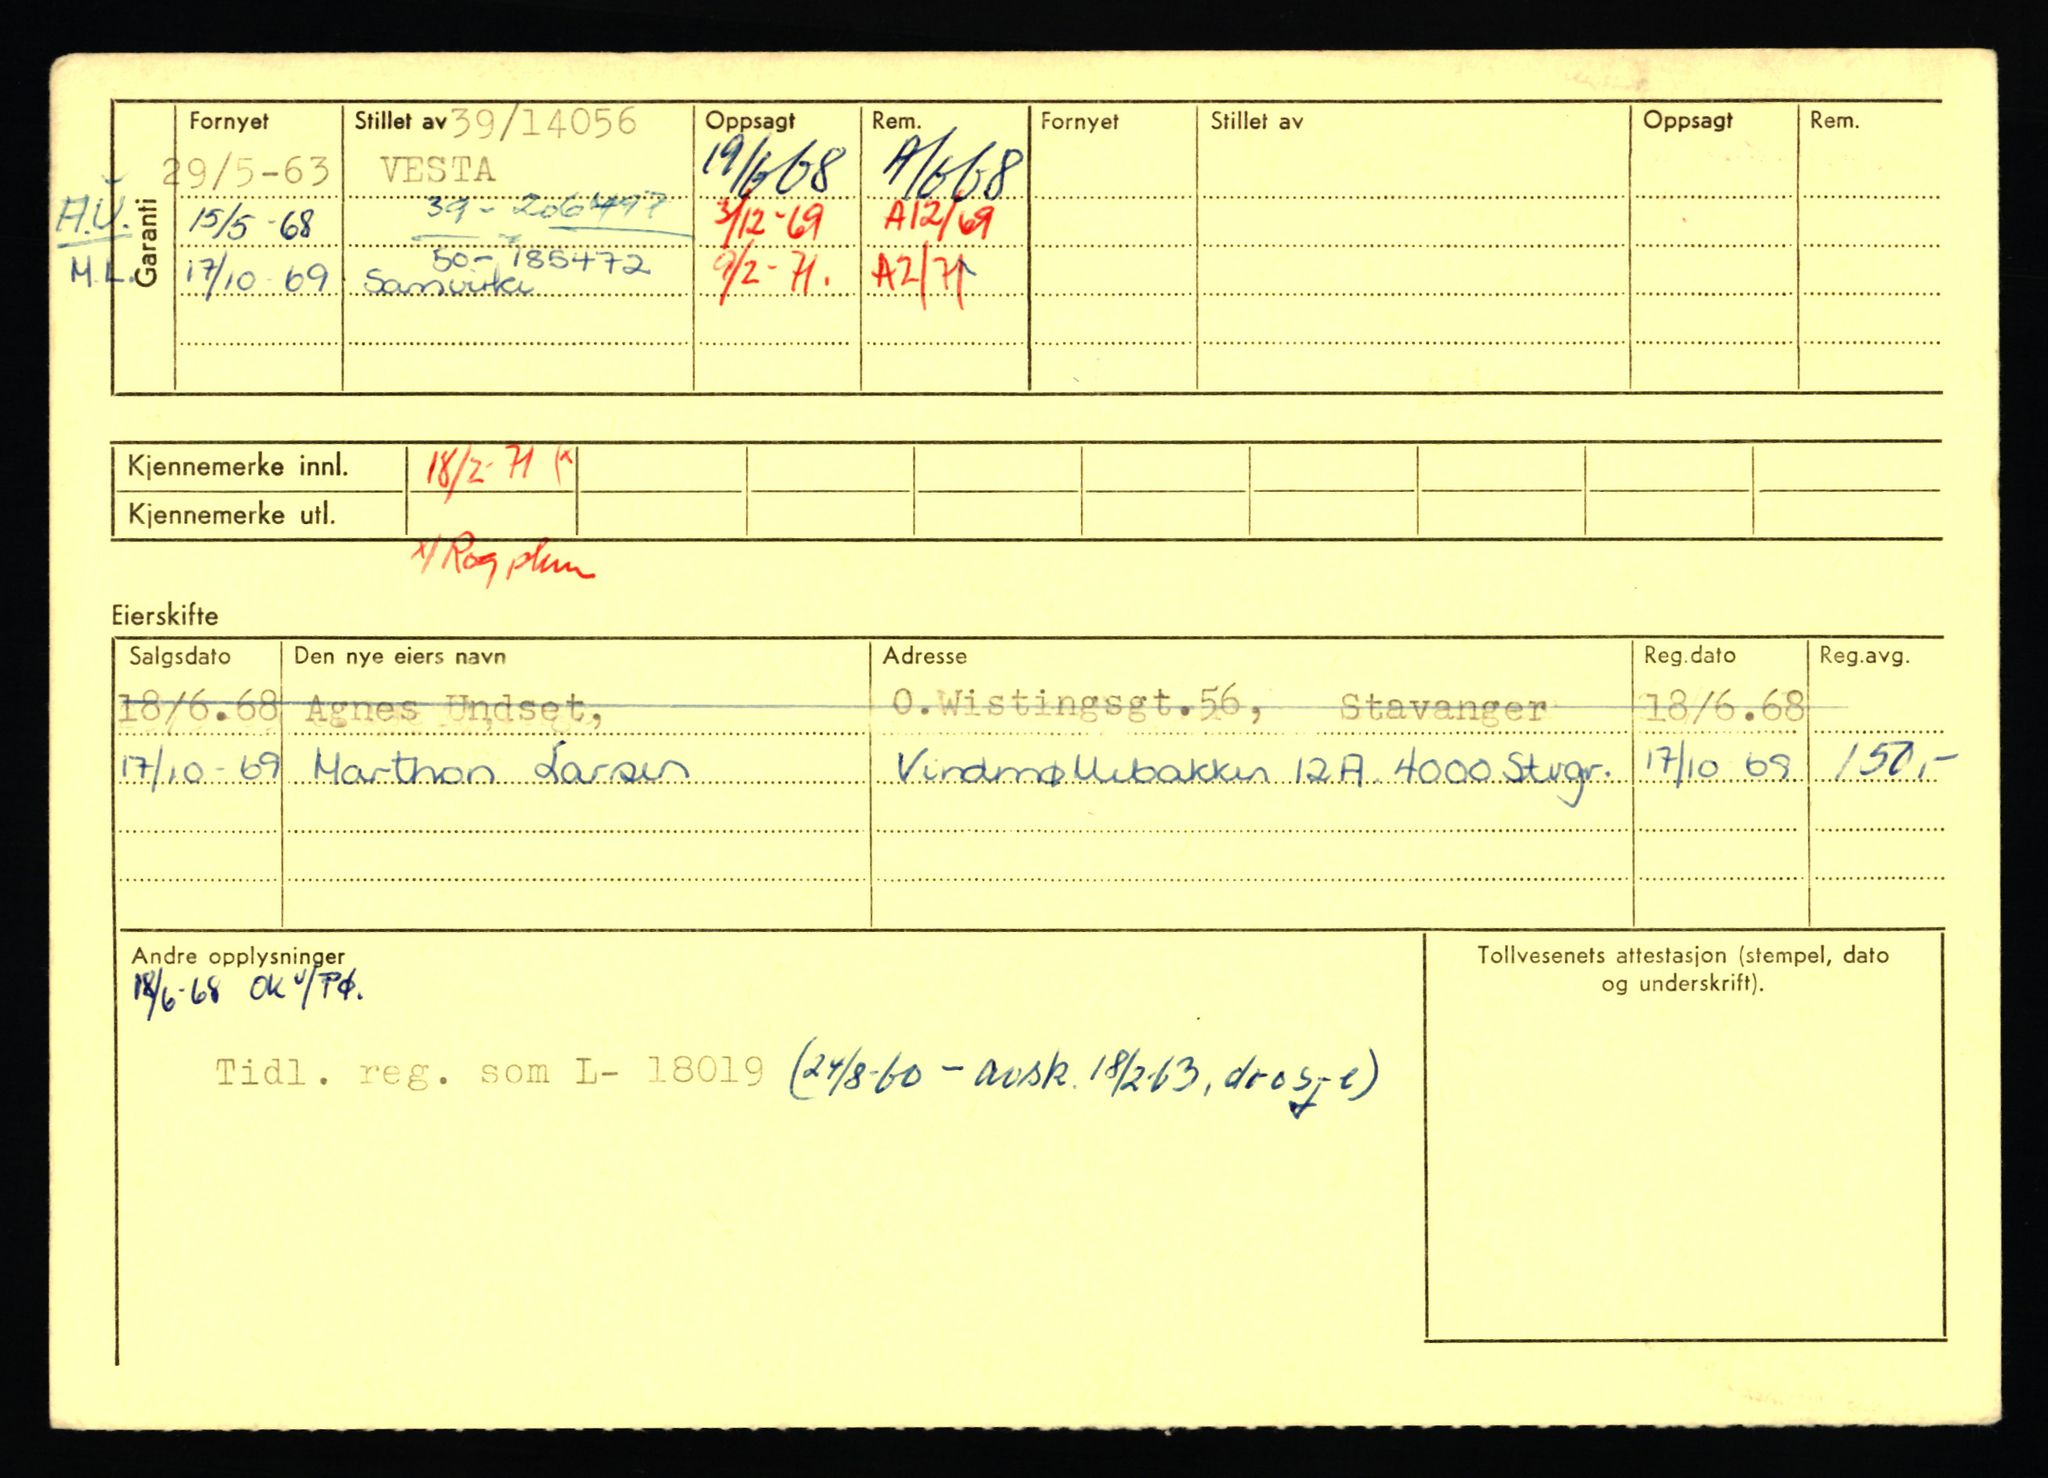 Fornyet Stillet av 39/14056 Oppsagt Rem. Fornyet Stillet av Oppsagt Rem.
29/5-63 VESTA 19/6 68 A/6 68
A.U. 15/5-68 39- 3/12-69 A12/69
M.L. 17/10-69 50-185472 Samvirke 9/2-71. A2/71
Garanti
Kjennemerke innl. 18/2-71 (x
Kjennemerke utl.
x/ Rog
Eierskifte
Salgsdato Den nye eiers navn Adresse Reg.dato Reg.avg.
18/6.68 Agnes Undset, O.Wistingsgt.56, Stavanger 18/6.68
17/10-69 Marthon Larsen Vindmøllebakken 12A. 4000 Stvgr. 17/10 69 150,-
Andre opplysninger
18/6-68 OK v/PØ.
Tollvesenets attestasjon (stempel, dato
og underskrift).
Tidl. reg. som L- 18019 (24/8-60 - avsk. 18/2-63, drosje)